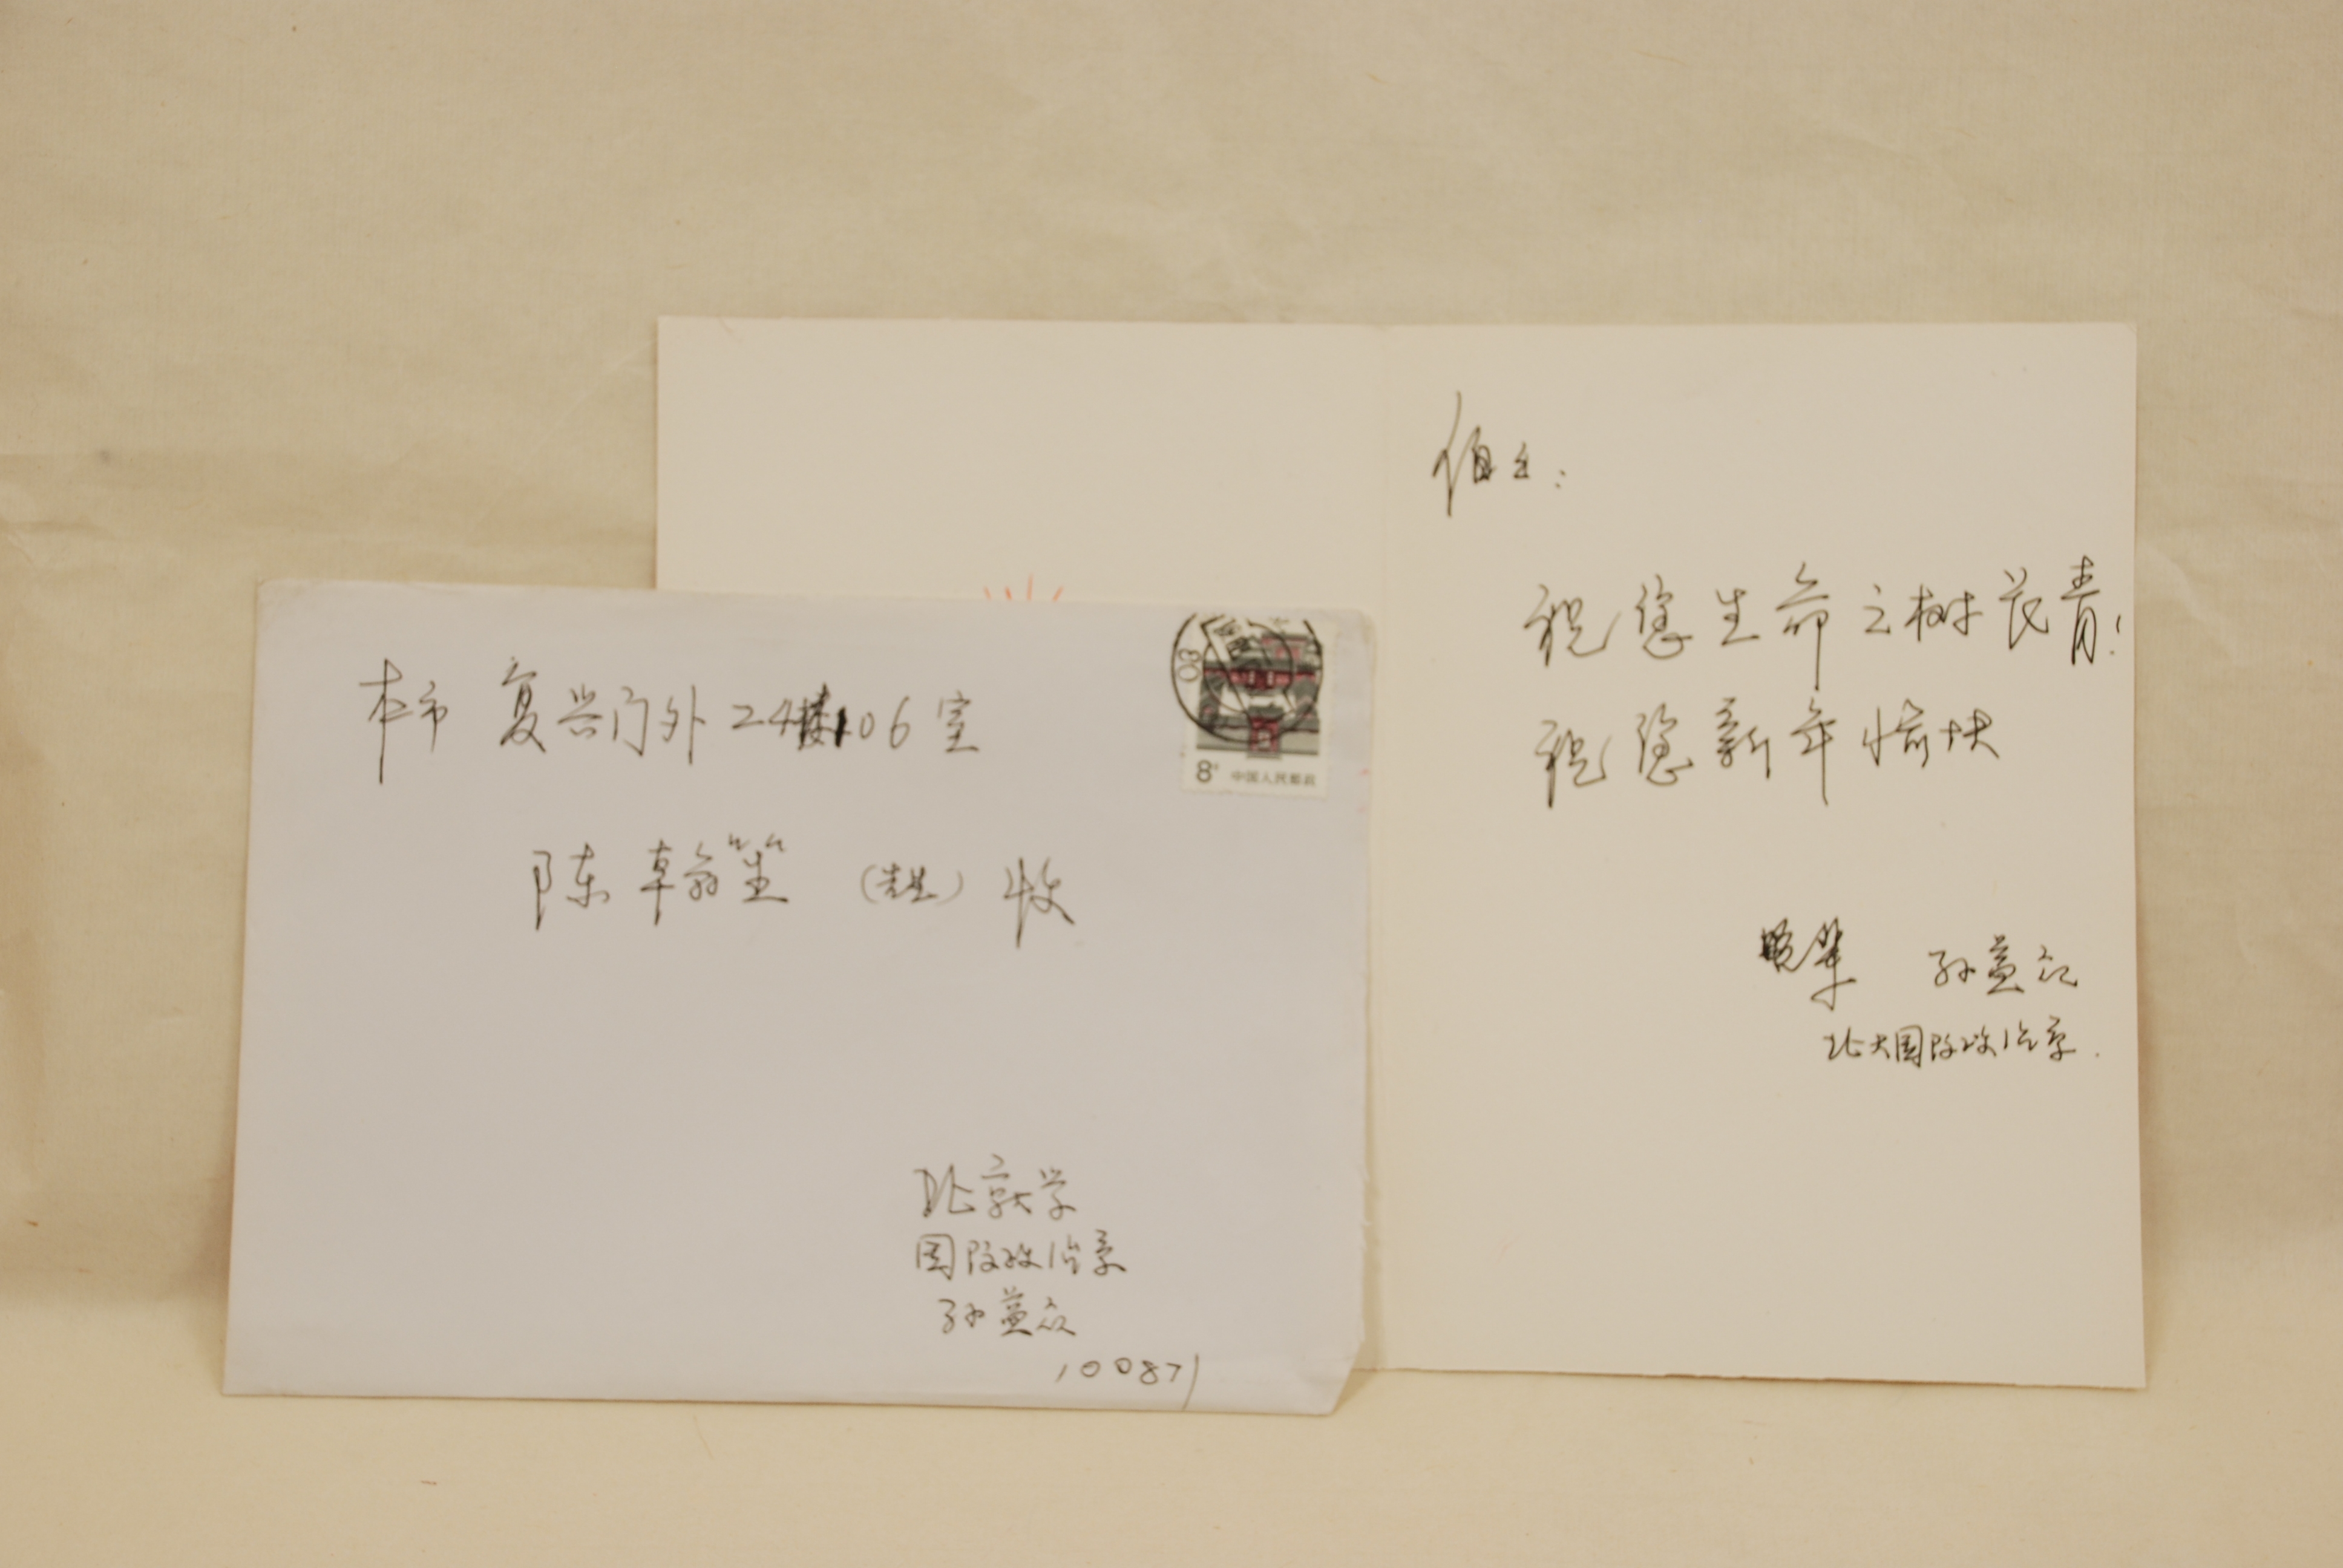 本市 复兴门外24楼106室
陈翰笙 (先生) 收
8分 中国人民邮政
北京大学
国际政治系
孙益众
100871
祝您生命之树长青!
祝您新年愉快
晚辈 孙益众
北大国际政治系.